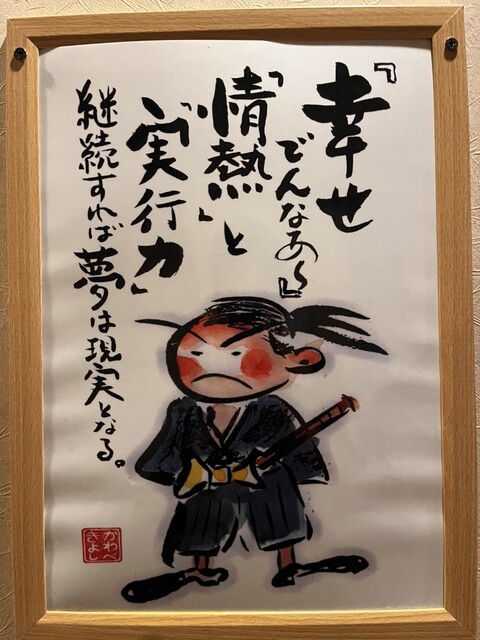 『幸せ
でんなあ〜』
「情熱」と
「実行力」
継続すれば夢は現実となる。
かわべ
きよし